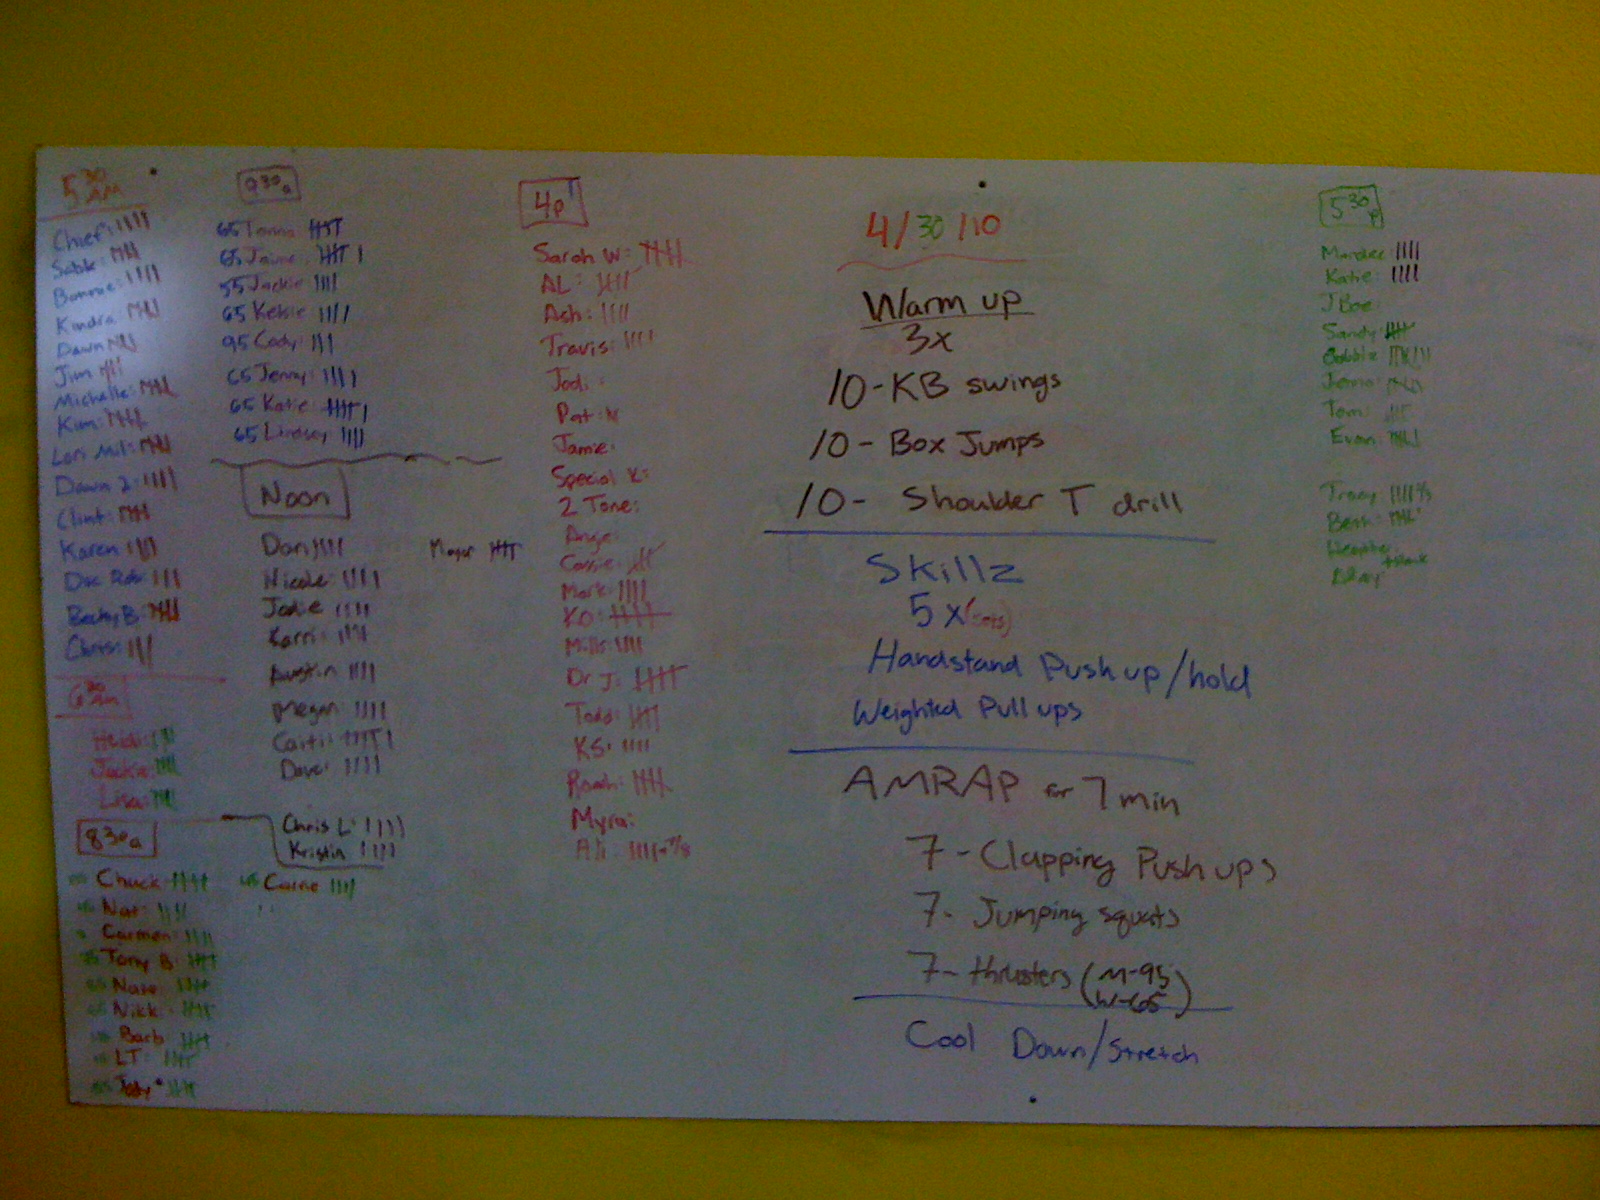 5 30 AM
Chief:
Kindra
Dawn
Jim
Michelle:
Kim:
Lori Mil:
Dawn 2:
Clint:
Karen:
Becky B:
Chris:
6 30 Am
Heidi:
Jackie:
Lisa:
8 30 a
Chuck
Nat:
Carmen:
Tony B:
Nate
Nikk:
Barb
LT:
Jody
9 30 a
65 Jaime
55 Jackie
65 Kelsie
95 Cody:
65 Jenny:
65 Katie
65 Lindsay
Noon
Dan
Nicole:
Jodie
Karri:
Austin
Megan
Caiti:
Dave:
Chris L:
Kristin
4p
Sarah W:
AL:
Ash:
Travis:
Jodi:
Pat:
Jamie:
Special K:
2 Tone:
Angie
Cassie:
Mark:
KO:
Mills
Dr J:
Todd:
KS:
Myra:
Ali:
4/30/10
Warm up
3x
10-KB swings
10- Box Jumps
10- Shoulder T drill
Skillz
5 x (sets)
Handstand Push up/hold
Weighted Pull ups
AMRAP for 7 min
7- Clapping Push ups
7- Jumping squats
7- thrusters (M-95
W-65)
Cool Down/Stretch
5 30 p
Katie:
J Boe:
Sandy:
Bobbie
Jenna:
Tom:
Evan:
Tracy
Beth: